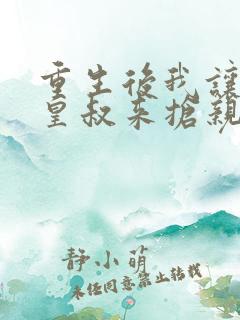 重生後我讓
皇叔來搶親
靜小萌
未經同意禁止轉載